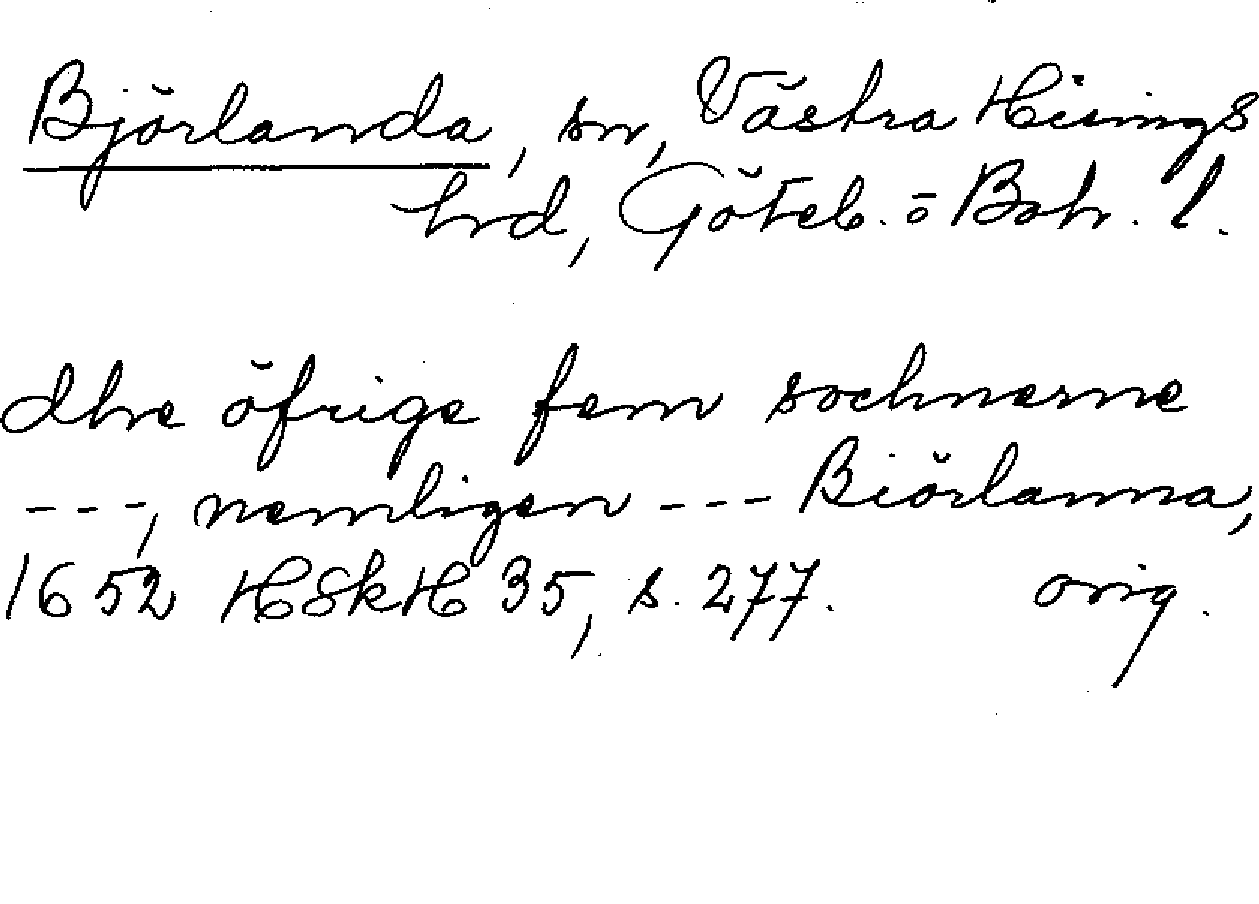 Björlanda, sn, Västra Hisings
hrd, Göteb. o Boh. l.
dhe öfrige fem sochnerne
---, nemligen --- Biörlanna,
1652 HSkH 35, s. 277. orig.